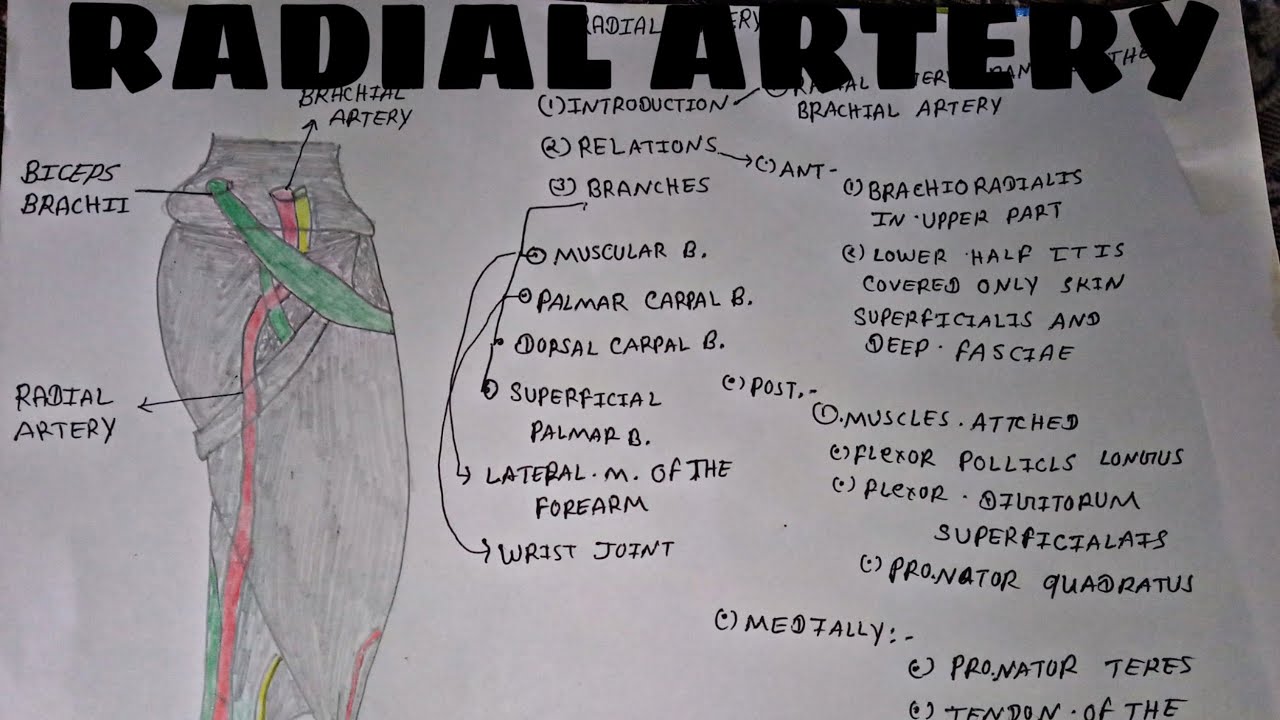 RADIAL ARTERY
RADIAL
BRACHIAL
ARTERY
BICEPS
BRACHII
RADIAL
ARTERY
(1) INTRODUCTION
BRACHIAL ARTERY
(2) RELATIONS
(•) ANT-
(1) BRACHIORADIALIS
IN UPPER PART
(2) LOWER HALF IT IS
COVERED ONLY SKIN
SUPERFICIALIS AND
DEEP. FASCIAE
(3) BRANCHES
MUSCULAR B.
PALMAR CARPAL B.
DORSAL CARPAL B.
SUPERFICIAL
PALMAR B.
LATERAL.M. OF THE
FOREARM
WRIST JOINT
(•) POST.-
(1).MUSCLES.ATTCHED
(•) FLEXOR POLLICLS LONGUS
(•) FLEXOR.
SUPERFICIALAIS
(•) PRO.NATOR QUADRATUS
(•) MEDIALLY:-
(•) PRO.NATOR TERES
(•) TENDON.OF THE